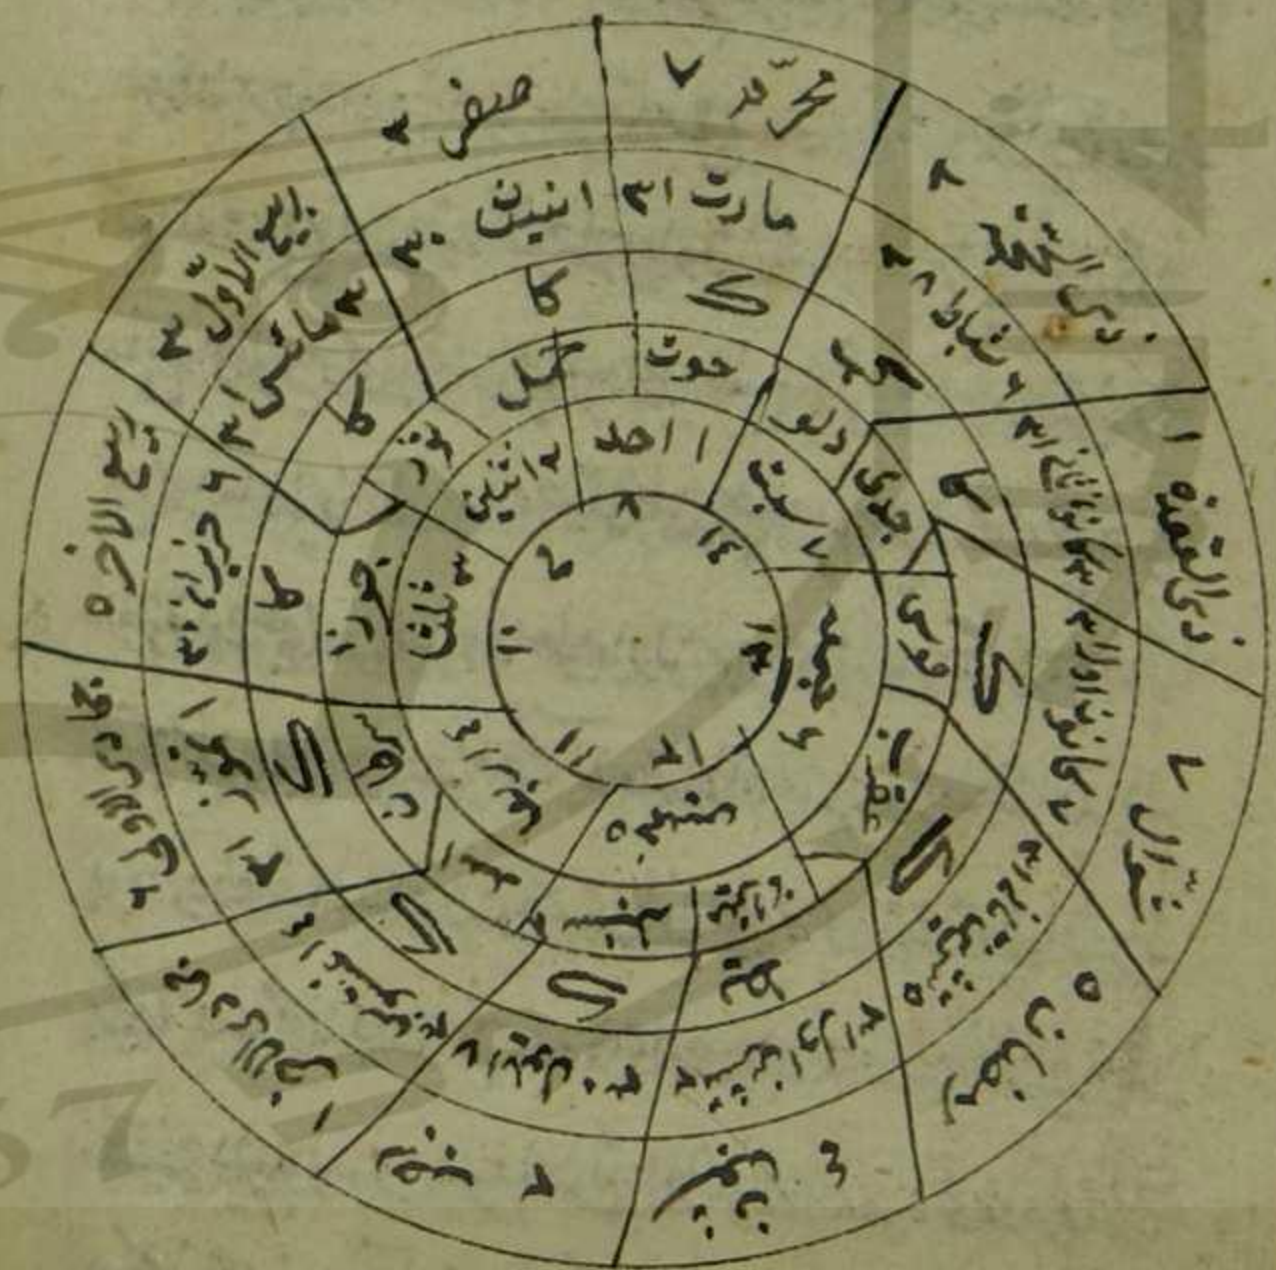 محرّم ٧
صفر ٢
ربيع الاوّل ٣
ربيع الاخر ٥
جمادى الاولى ٦
جمادى الاخر ١
رجب ٢
شعبان ٤
رمضان ٥
شوّال ٧
ذى القعده ١
ذى الحجه
مارت ٣١
نيسان ٣٠
مايس ٣١
٦ حزيران ٣٠
١ تموز ٣١
٤ اغستوس
٧ ايلول ٣٠
٢ تشرين اول ٣١
٥ تشرين ثانى
٧ كانون اول ٣١
كانون ثانى ٣١
شباط
ك
كا
كا
كا
ك
ك
ك
يط
ك
ك
كا
حوت
حمل
ثور
جوزا
سرطان
اسد
سنبله
ميزان
عقرب
قوس
جدى
دلو
١ احد
٢ اثنين
٣ ثلثا
٤
٥ خميس
٦ جمعه
٧ سبت
١١
١١
١٢
١٣
١٤